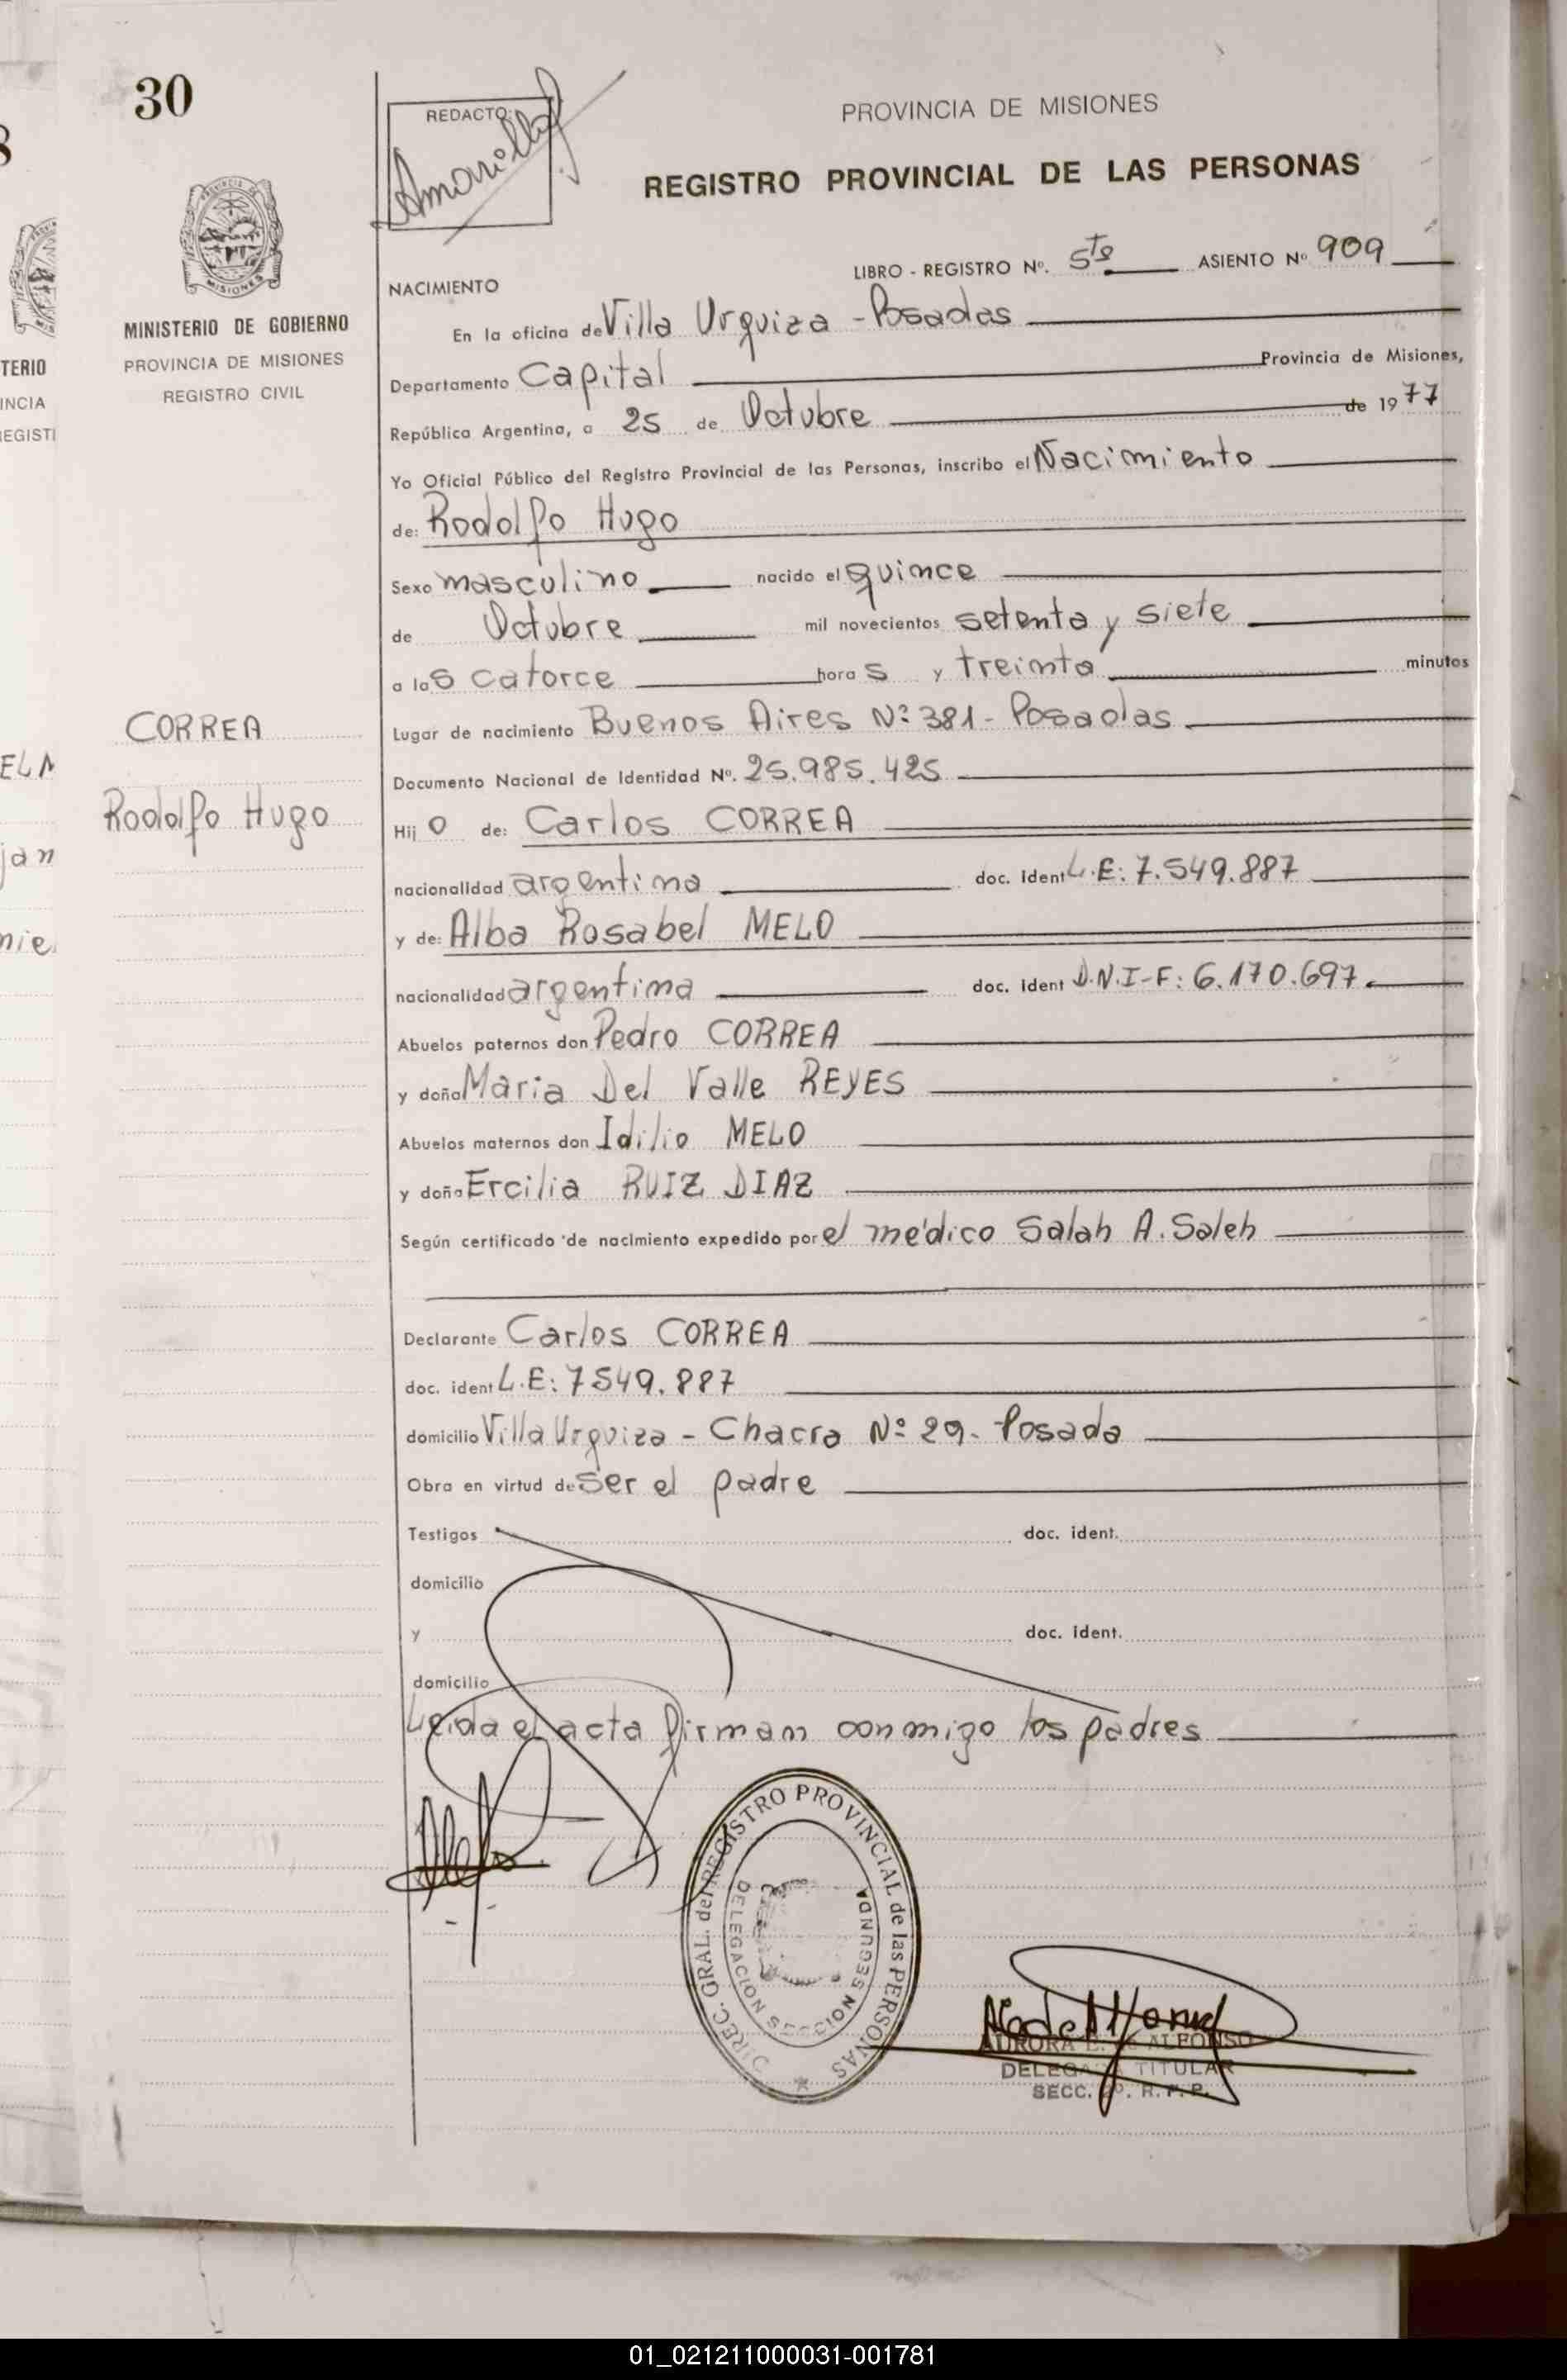 30
REDACTO:
Amarilla
PROVINCIA DE MISIONES
REGISTRO PROVINCIAL DE LAS PERSONAS
LIBRO - REGISTRO Nº. 5to ASIENTO Nº 909
MINISTERIO DE GOBIERNO
PROVINCIA DE MISIONES
REGISTRO CIVIL
NACIMIENTO
En la oficina de Villa Urquiza - Posadas
Departamento Capital Provincia de Misiones,
República Argentina, a 25 de Octubre de 1977
Yo Oficial Público del Registro Provincial de las Personas, inscribo el Nacimiento
de: Rodolfo Hugo
Sexo masculino nacido el quince
de Octubre mil novecientos setenta y siete
a las catorce horas y treinta minutos
CORREA
Rodolfo Hugo
Lugar de nacimiento Buenos Aires Nº 381 - Posadas
Documento Nacional de Identidad Nº. 25.985.425
Hijo de: Carlos CORREA
nacionalidad argentina doc. ident L.E: 7.549.887
y de: Alba Rosabel MELO
nacionalidad argentina doc. ident D.N.I-F: 6.170.697
Abuelos paternos don Pedro CORREA
y doña Maria Del Valle REYES
Abuelos maternos don Idilio MELO
y doña Ercilia RUIZ DIAZ
Según certificado de nacimiento expedido por el médico Salah A. Saleh
Declarante Carlos CORREA
doc. ident L.E: 7549.887
domicilio Villa Urquiza - Chacra Nº 29 - Posada
Obra en virtud de ser el padre
Testigos doc. ident.
domicilio
y doc. ident.
domicilio
Leida el acta firman conmigo los padres
DIREC. GRAL. del REGISTRO PROVINCIAL de las PERSONAS
DELEGACION SECCION SEGUNDA
AURORA E. de ALFONSO
DELEGADA TITULAR
SECC. 2º. R. P. P.
TERIO
INCIA
REGISTI
01_021211000031-001781